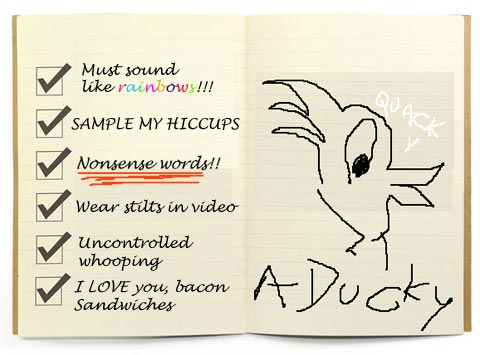 Must sound
like rainbows!!!
SAMPLE MY HICCUPS
Nonsense words!!
Wear stilts in video
Uncontrolled
whooping
I LOVE you, bacon
Sandwiches
QUACK
A DUCKy